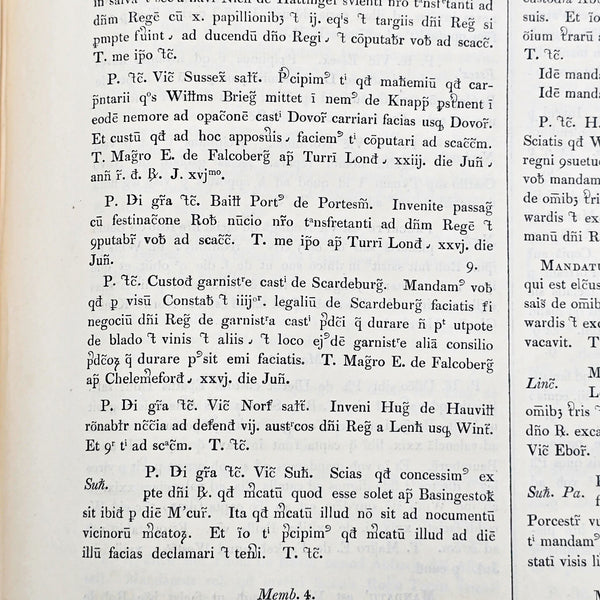 in salva t̃ sec̃a navi Nich de Hattingef s̃vienti nr̃o t̃nsfretanti ad
dñm Regē cū x. papillionibȝ ⁊ ij. eqⁱs ⁊ targiis dñi Reg̃ si
p̱mpte fuint, ad ducendū dño Regi, ⁊ cōputabr̃ vob̃ ad scacc̃.
T. me ip̃o ⁊c̃.
P. ⁊c̃. Vic̃ Sussex̃ sał̃t. P̃cipimꝰ tⁱ qd̃ mah̃emiū qd̃ car-
p̃ntarii qᵒs Witłms Brieg̃ mittet ī nemꝰ de Knapp̃ p̱st̃nent ī
eodē nemore ad op̃acōnē castⁱ Dovor̃ carriari facias usq̨ Dovor̃.
Et custū qd̃ ad hoc apposũis, faciemꝰ tⁱ cōputari ad scac̃c̃m.
T. Mag̃ro E. de Falcoberg̃ ap̃ Turrī Lond̃, xxiij. die Juñ,
anñ r̃. d̃. ℞. J. xvjᵐᵒ.
P. D̃i gr̃a ⁊c̃. Baił̃t Portꝰ de Portesm̃. Invenite passag̃
cū festinac̃one Rob̃ nūcio nr̃o tᵃnsfretanti ad dñm Regē ⁊
ꝯputabr̃ vob̃ ad scac̃c̃. T. me ip̃o ap̃ Turrī Lond̃, xxvj. die
Juñ.
9.
P. ⁊c̃. Custod̃ garnistʳe castⁱ de Scardeburg̃. Mandamꝰ vob̃
qd̃ p̱ visū Constab̃ ⁊ iiijᵒʳ. legaliū de Scardeburg̃ faciatis f̃i
negociū dñi Reg̃ de garnistʳa castⁱ p̃dc̃i q̃ durare ñ pᵗ utpote
de blado ⁊ vinis ⁊ aliis, ⁊ loco ej̃ꝰdē garnistʳe aliā consilio
p̃dc̃oꝝ q̃ durare pꝰsit emi faciatis. T. Mag̃ro E. de Falcoberg̃
ap̃ Chelem̃eford̃, xxvj. die Juñ.
P. D̃i gr̃a ⁊c̃. Vic̃ Norf̃ sał̃t. Inveni Hug̃ de Hauviłł
rōnabłr nc̃c̃ia ad defend̃ vij. austʳcos dñi Reg̃ a Lenh̃ usq̨ Winr̃.
Et 9ʳ tⁱ ad scᵃc̃m. T. ⁊c̃.
Suh̃.
P. D̃i gr̃a ⁊c̃. Vic̃ Suh̃. Scias qd̃ concessimꝰ ex
pte dñi ℞. qd̃ m̃catū quod esse solet ap̃ Basingestok̃
sit ibid̃ p̱ diē M'cur̃. Ita qd̃ m̃catū illud nō sit ad nocumentū
vicinorū m̃catoꝝ. Et īo tⁱ p̃cipimꝰ qd̃ m̃catū illud ad diē
illū facias declamari ⁊ ten̄i. T. ⁊c̃.
Memb. 4.
suis. Et īo
T. ⁊c̃.
Idē manda
Idē manda
P. ⁊c̃. H.
Sciatis qd̃ W
vob̃ mandam
de om̃ibȝ
wardis ⁊ ex
manū dñi R
MANDATU
qui est
wardis ⁊ ex
vacavit. T
M
Linc̃.
L
Vic̃ Ebor̃.
Suh̃. Pa.
P
tⁱ mandamꝰ
stati visis li